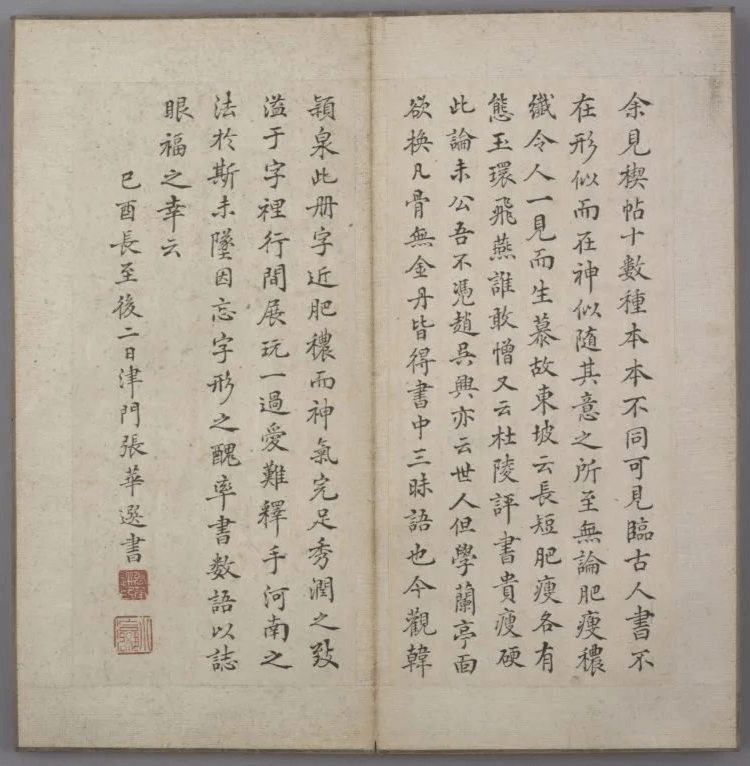 余見禊帖十數種本本不同可見臨古人書不
在形似而在神似隨其意之所至無論肥瘦穠
纖令人一見而生慕故東坡云長短肥瘦各有
態玉環飛燕誰敢憎又云杜陵評書貴瘦硬
此論未公吾不憑趙吳興亦云世人但學蘭亭面
欲换凡骨無金丹皆得書中三昧語也今觀韓
潁泉此册字近肥穠而神氣完足秀潤之致
溢于字裡行間展玩一過愛難釋手河南之
法於斯未墜因忘字形之醜率書数語以誌
眼福之幸云
己酉長至後二日津門張華選書